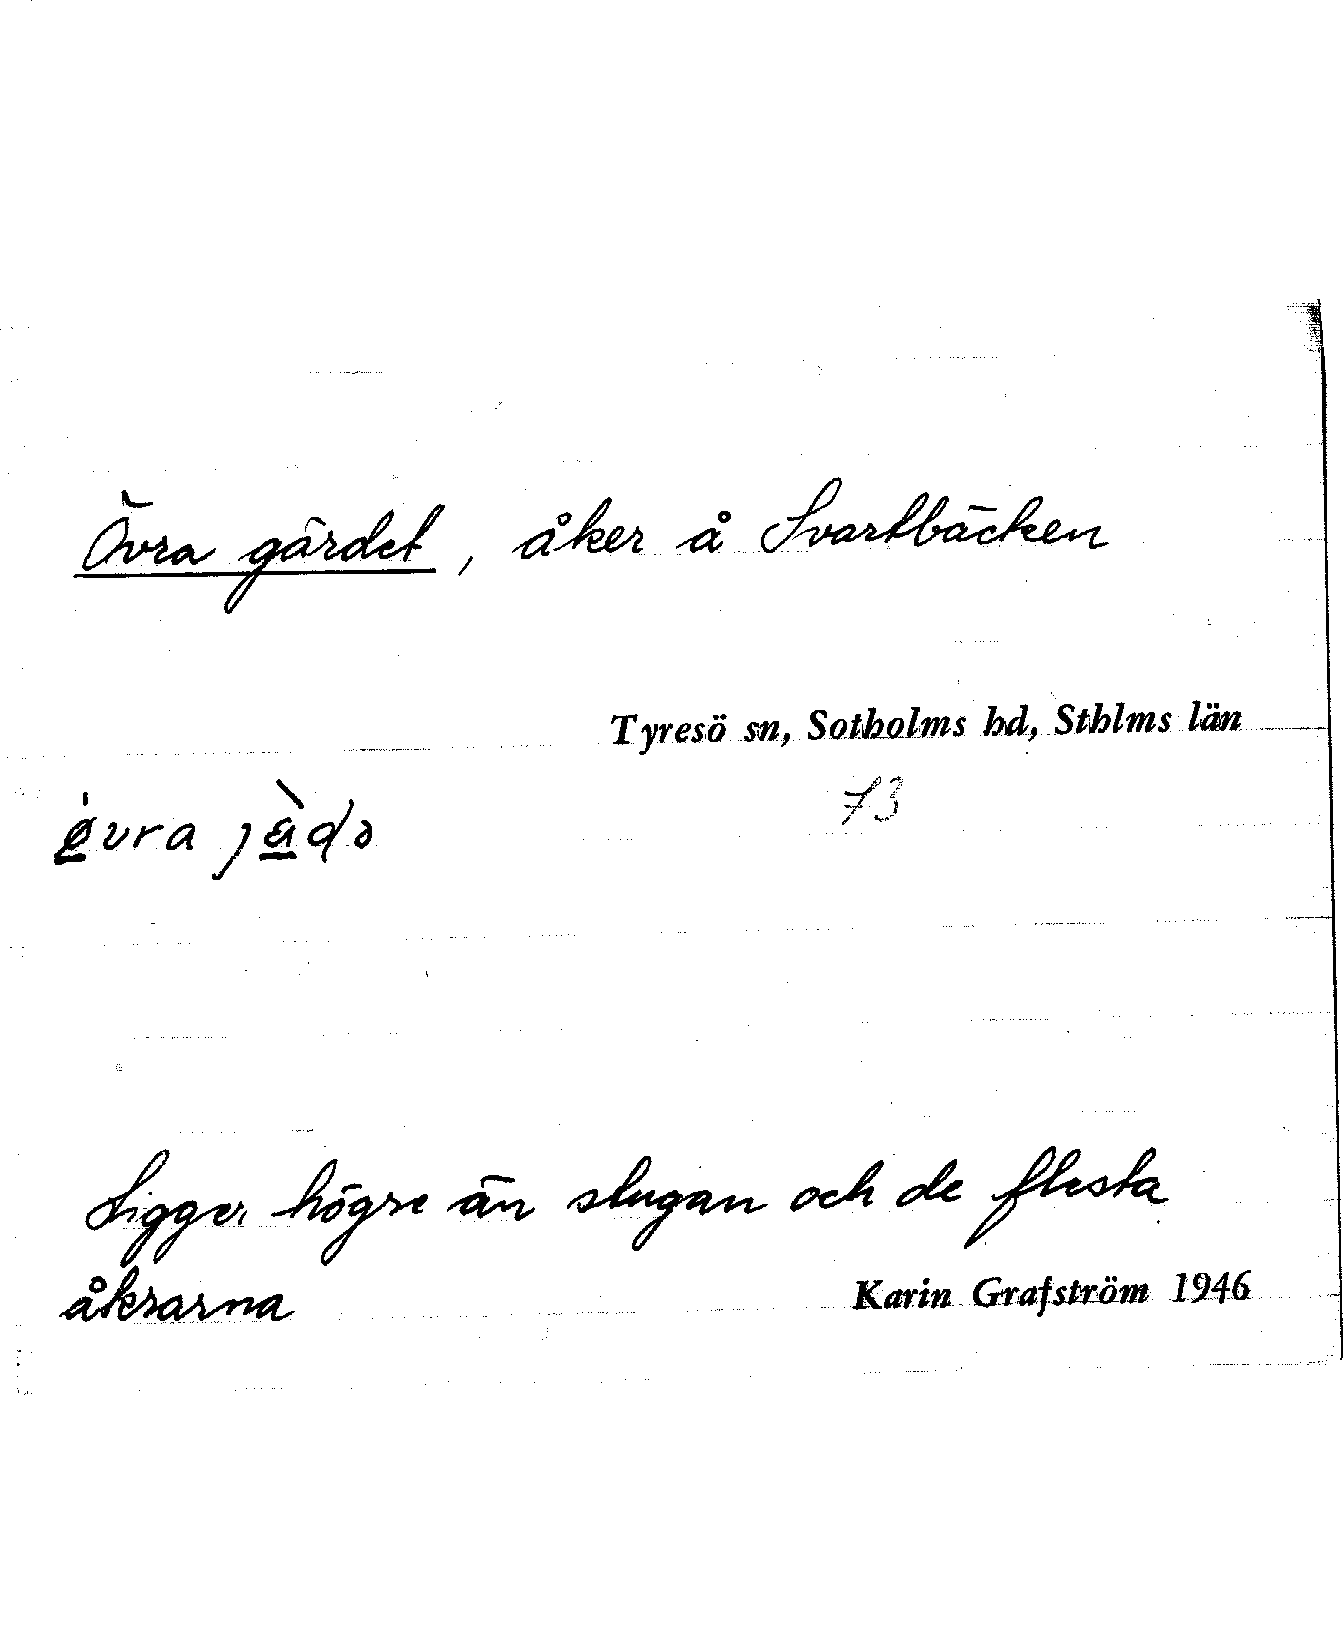 Övra gärdet, åker å Svartbäcken
Tyresö sn, Sotholms hd, Sthlms län
73
Ligger högre än stugan och de flesta
åkrarna
Karin Grafström 1946